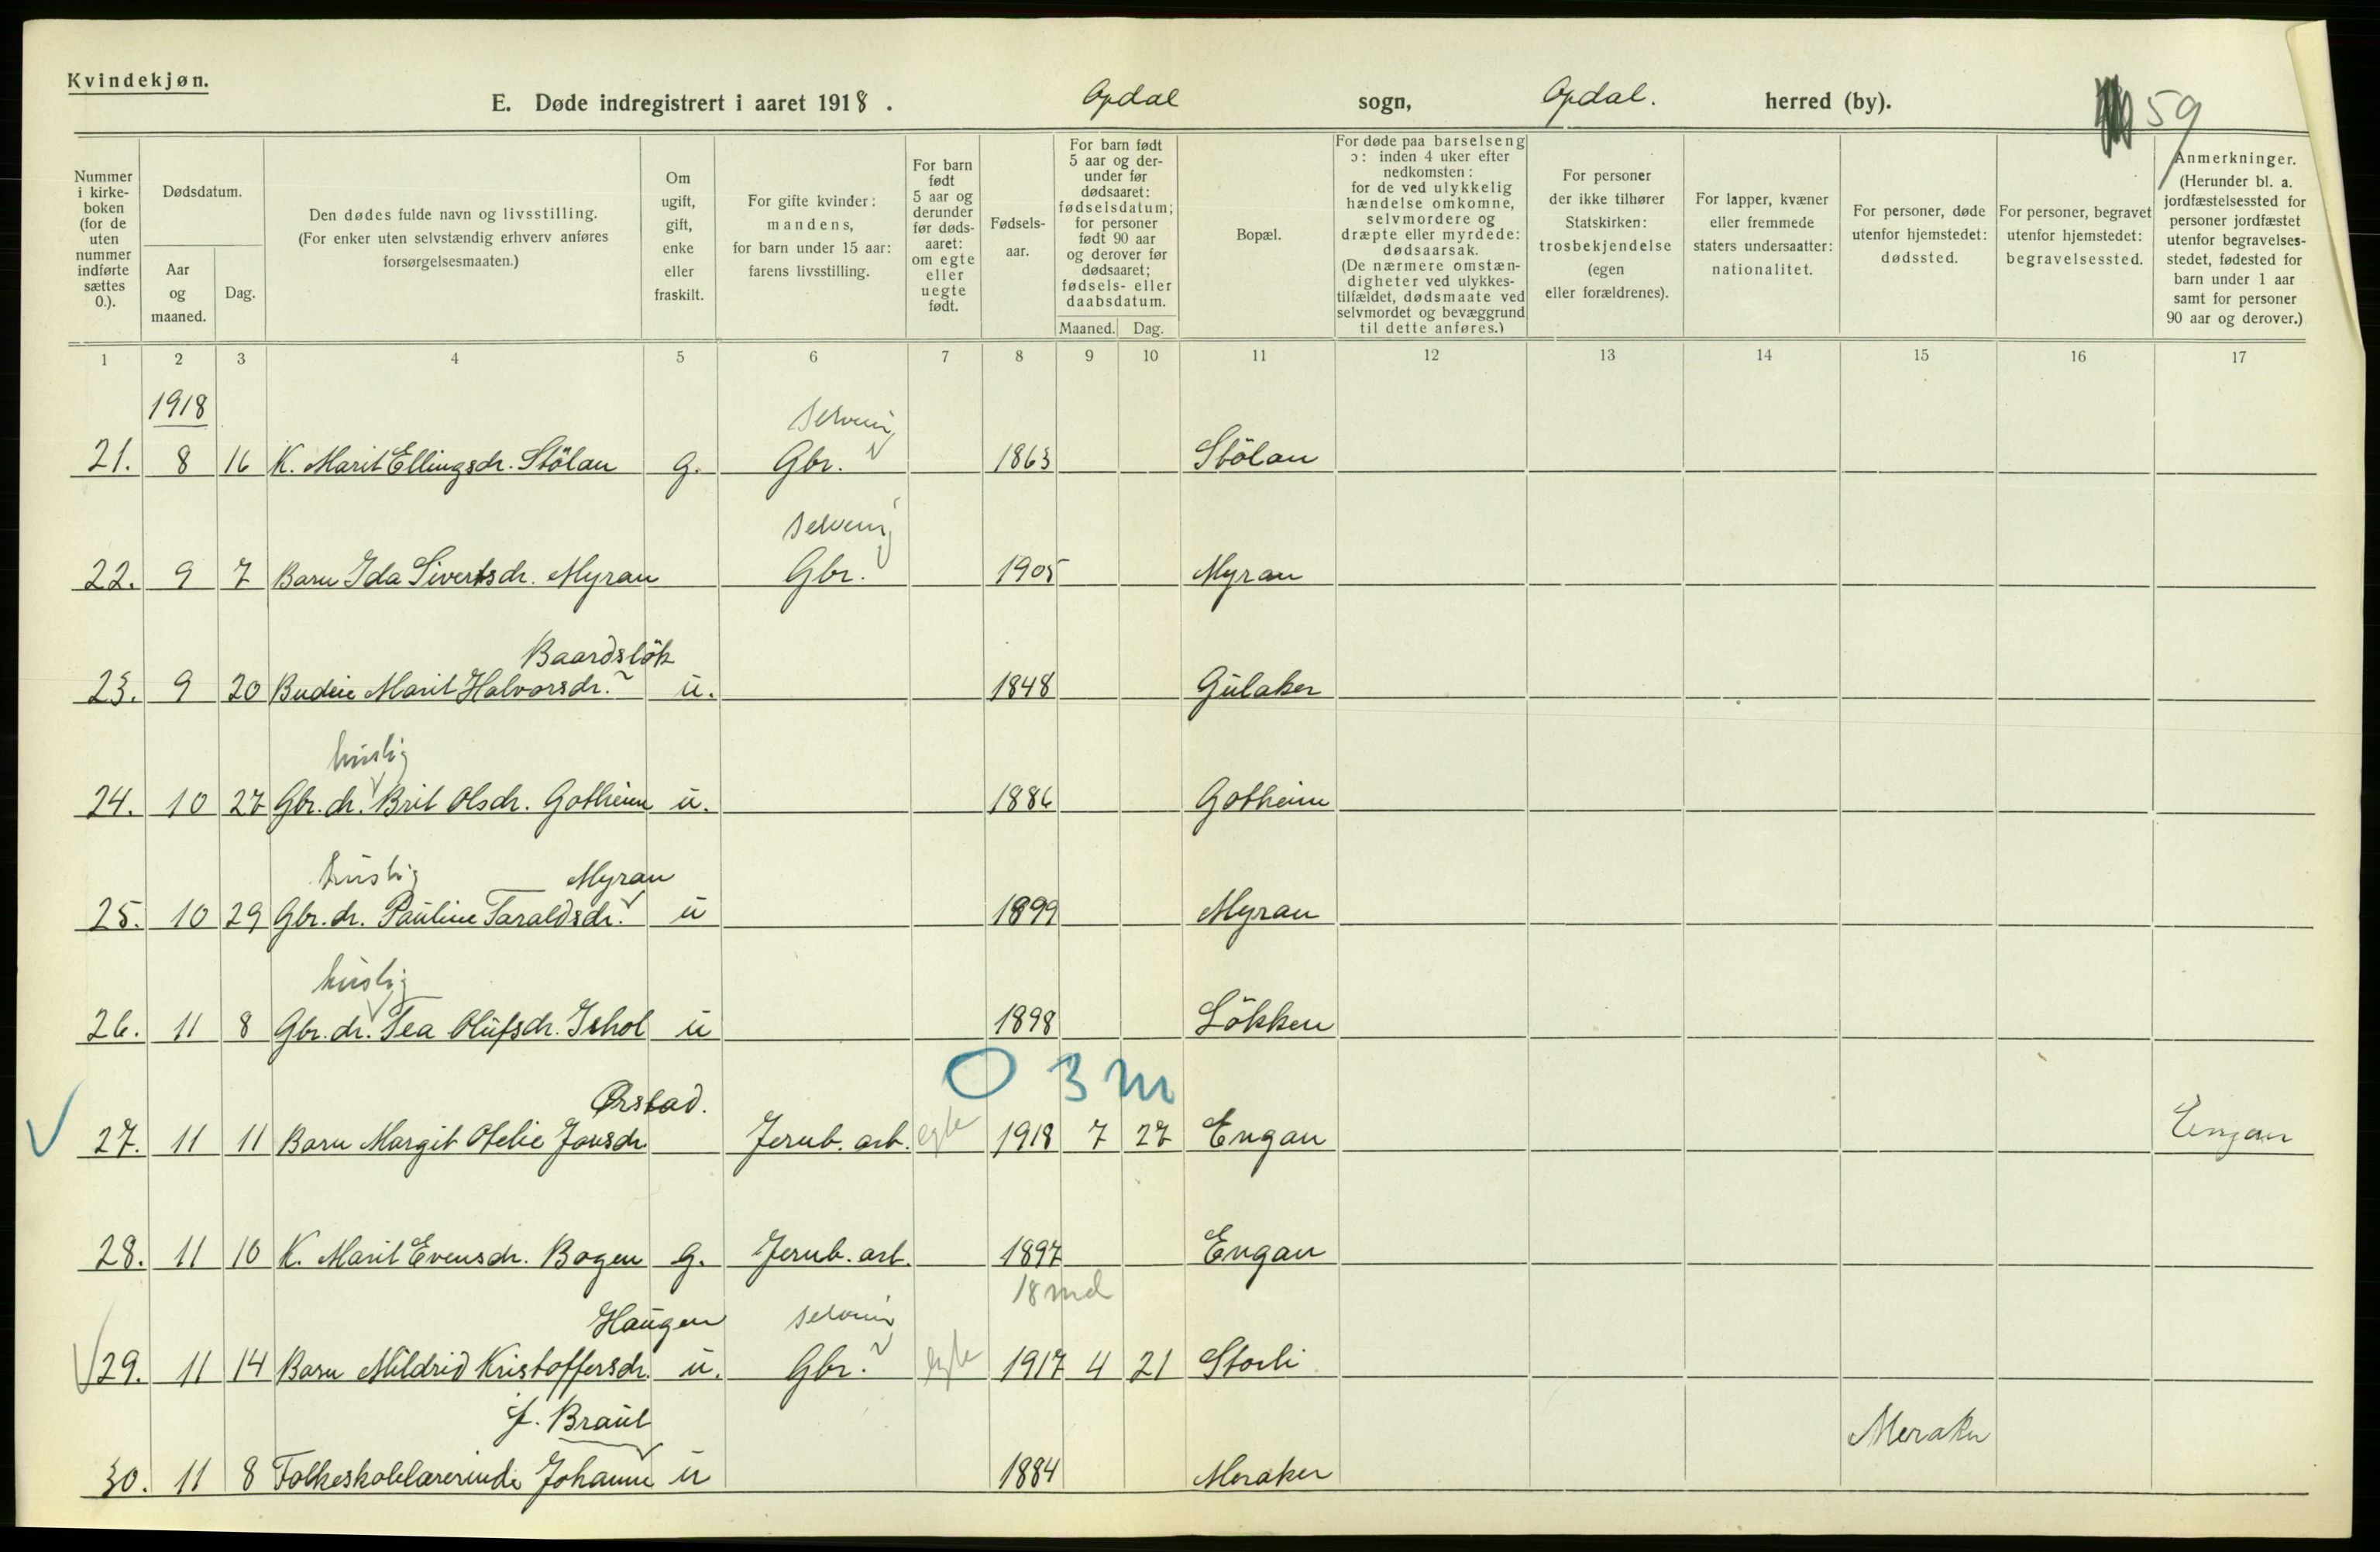 Kvindekjøn.
E. Døde indregistrert i aaret 1918. Opdal sogn, Opdal. herred (by). 59
Nummer i kirke-boken (for de uten nummer indførte sættes 0.).
Dødsdatum.
Aar og maaned.
Dag.
Den dødes fulde navn og livsstilling. (For enker uten selvstændig erhverv anføres forsørgelsesmaaten.)
Om ugift, gift, enke eller fraskilt.
For gifte kvinder: mandens, for barn under 15 aar: farens livsstilling.
For barn født 5 aar og derunder før døds-aaret: om egte eller uegte født.
Fødsels-aar.
For barn født 5 aar og der-under før dødsaaret: fødselsdatum; for personer født 90 aar og derover før dødsaaret; fødsels- eller daabsdatum.
Maaned. Dag.
Bopæl.
For døde paa barselseng ɔ: inden 4 uker efter nedkomsten: for de ved ulykkelig hændelse omkomne, selvmordere og dræpte eller myrdede: dødsaarsak. (De nærmere omstæn-digheter ved ulykkes-tilfældet, dødsmaate ved selvmordet og bevæggrund til dette anføres.)
For personer der ikke tilhører Statskirken: trosbekjendelse (egen eller forældrenes).
For lapper, kvæner eller fremmede staters undersaatter: nationalitet.
For personer, døde utenfor hjemstedet: dødssted.
For personer, begravet utenfor hjemstedet: begravelsessted.
Anmerkninger. (Herunder bl. a. jordfæstelsessted for personer jordfæstet utenfor begravelses-stedet, fødested for barn under 1 aar samt for personer 90 aar og derover.)
1 2 3 4 5 6 7 8 9 10 11 12 13 14 15 16 17
1918
selveier
21. 8 16 K. Marit Ellingsdr. Stölan g. Gbr. 1863 Stölan
selveier
22. 9 7 Barn Ida Sivertsdr. Myran Gbr. 1905 Myran
Baardslök
23. 9 20 Budeie Marit Halvorsdr. u. 1848 Gulaker
huslig
24. 10 27 Gbr. dr. Brit Olsdr. Gotheim u. 1886 Gotheim
huslig Myran
25. 10 29 Gbr. dr. Pauline Taraldsdr. u 1899 Myran
huslig
26. 11 8 Gbr. dr. Tea Olufsdr. Ishol u 1898 Lökken
0 3 m
Ørstad.
27. 11 11 Barn Margit Ofelie Jonsdr Jernb. arb. egte 1918 7 27 Engan Engan
28. 11 10 K. Marit Evensdr. Bogen g. Jernb. arb. 1897 Engan
18 md
Haugen selveier
29. 11 14 Barn Mildrid Kristoffersdr. u. Gbr. egte 1917 4 21 Storli
J. Braut Meraker
30. 11 8 Folkeskolelærerinde Johanne u 1884 Meraker